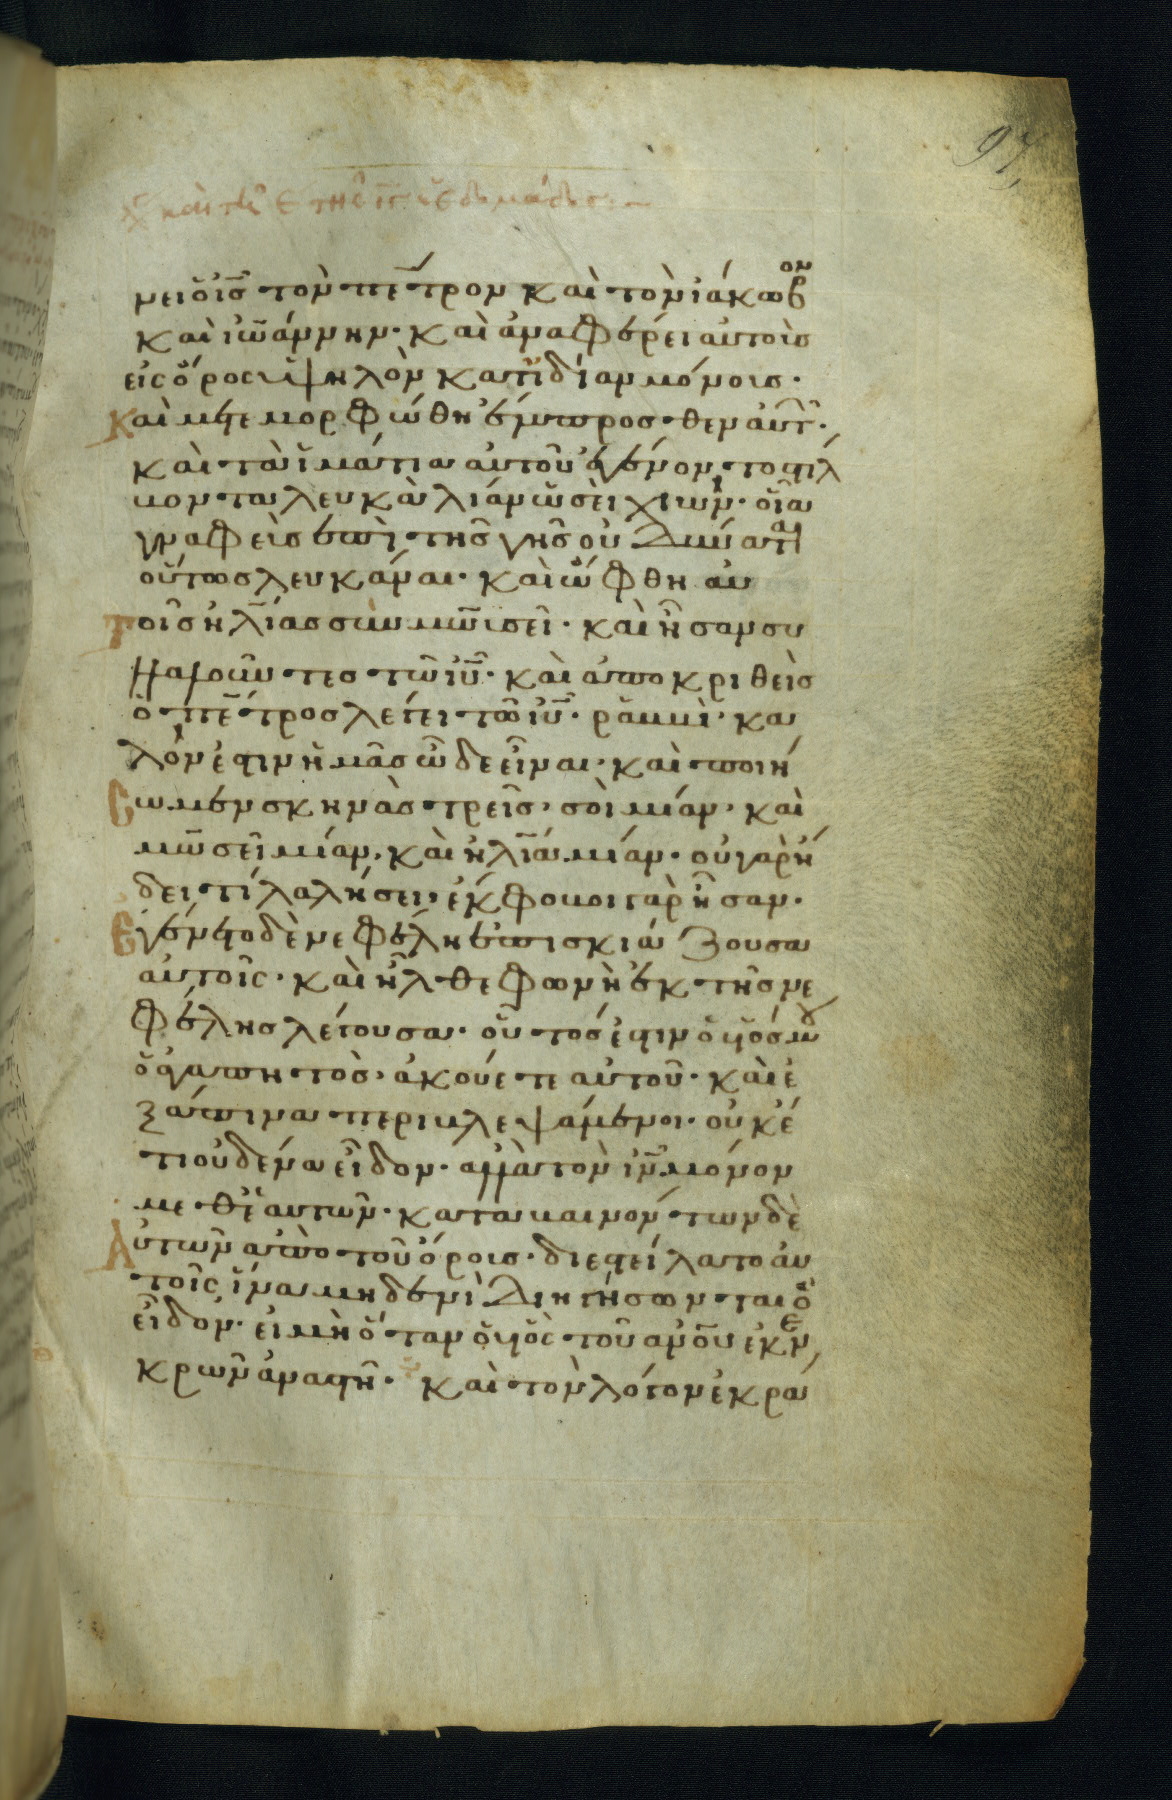 97
μει ὁ ις τὸν πέτρον καὶ τὸν ιάκωβον
καὶ ιωάννην· καὶ ἀναφέρει αὐτοὺσ
εἰς ὄρος ὑψηλὸν κατιδίαν μόνουσ·
Και μετεμορφώθη ἔμπροσθεν αὐτ·
καὶ τὰ ἱμάτια αὐτοῦ ἐγένοντο στίλ
βοντα λευκὰ λίαν ὡσεὶ χιών· οἷα
γναφεὺσ ἐπὶ τῆσ γῆσ οὐ δύναται
οὕτωσ λευκάναι· καὶ ὤφθη αὐ
τοῖσ ἠλίασ σὺν μωϊσεῖ· καὶ ἦσαν συ
λλαλοῦντεσ τῶ ιυ· καὶ ἀποκριθεὶσ
ὁ πέτροσ λέγει τῶ ιυ· ραββὶ· κα
λόν ἐστιν ἡμᾶσ ὧδε εἶναι· καὶ ποιή
σωμεν σκηνὰσ τρεῖσ· σοὶ μίαν· καὶ
μωσεῖ μίαν· καὶ ἠλία μίαν· οὐ γὰρ ἤ
δει τί λαλήσει· ἔκφοβοι γὰρ ἦσαν·
Εγένετο δὲ νεφέλη ἐπισκιάζουσα
αὐτοῖς· καὶ ἦλθε φωνὴ ἐκ τῆσ νε
φέλησ λέγουσα· οὗτόσ ἐστιν ὁ υἱόσ μου
ὁ ἀγαπητὸσ· ἀκούετε αὐτοῦ· καὶ ἐ
ξάπινα περιβλεψάμενοι· οὐκέ
τι οὐδένα εἶδον· ἀλλὰ τὸν ιν μόνον
μεθἑαυτῶν· καταβαινόντων δὲ
Αὐτῶν ἀπὸ τοῦ ὄρουσ· διεστείλατο αὐ
τοῖς ἵνα μηδενὶ διηγήσωνται ἃ
εἶδον· εἰ μὴ ὅταν ὁ υἱὸς τοῦ ανου ἐκ νε
κρῶν ἀναστῆ· καὶ τὸν λόγον ἐκρά